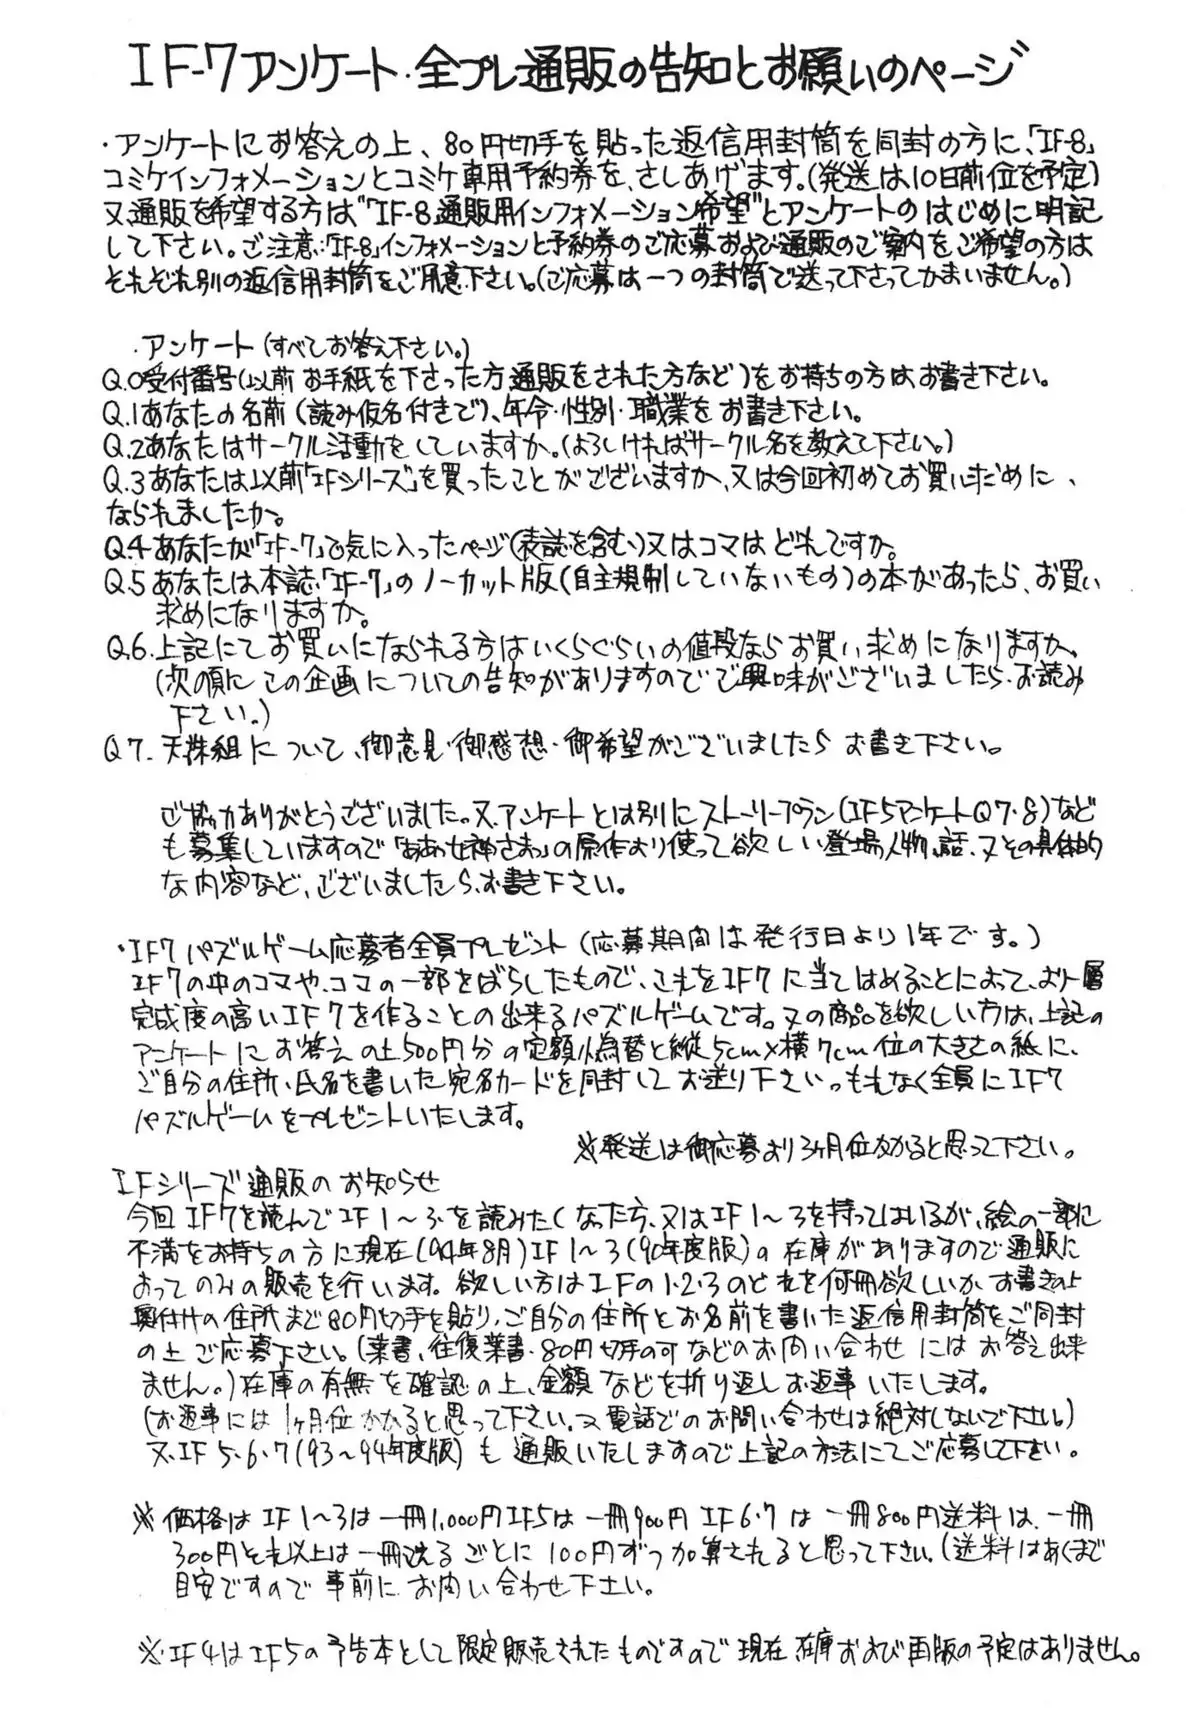 IF-7アンケート・全プレ通販の告知とお願いのページ
・アンケートにお答えの上、80円切手を貼った返信用封筒を同封の方に、「IF-8」
コミケインフォメーションとコミケ専用予約券を、さしあげます。(発送は10日前位を予定)
又通販を希望する方は"「IF-8」通販用インフォメーション希望"とアンケートのはじめに明記
して下さい。ご注意:「IF-8」インフォメーションと予約券のご応募および通販のご案内をご希望の方は
それぞれ別の返信用封筒をご用意下さい。(ご応募は一つの封筒で送って下さってかまいません。)
・アンケート(すべてお答え下さい。)
Q.0受付番号(以前お手紙を下さった方通販をされた方など)をお持ちの方は、お書き下さい。
Q.1あなたの名前(読み仮名付きで)、年令・性別・職業をお書き下さい。
Q.2あなたはサークル活動をしていますか。(よろしければサークル名を教えて下さい。)
Q.3あなたは以前「IFシリーズ」を買ったことがございますか、又は今回初めてお買い求めに、
なられましたか。
Q4あなたが「IF-7」で気に入ったページ(表誌を含む)又はコマはどれですか。
Q.5あなたは本誌「IF-7」のノーカット版(自主規制していないもの)の本があったら、お買い
求めになりますか。
Q.6.上記にてお買いになられる方はいくらぐらいの値段ならお買い求めになりますか。
(次の項にこの企画についての告知がありますのでご興味がございましたら、お読み
下さい。)
Q7.天誅組について、御意見・御感想・御希望がございましたらお書き下さい。
ご協力ありがとうございました。又、アンケートとは別にストーリープラン(IF5アンケートQ7・8)など
も募集していますので「ああっ女神さまっ」の原作より使って欲しい登場人物、話、又その具体的
な内容など、ございましたら、お書き下さい。
・IF7パズルゲーム応募者全員プレゼント(応募期間は発行日より1年です。)
IF7の中のコマや、コマの一部をばらしたもので、これをIF7に当てはめることによって、より一層
完成度の高いIF7を作ることの出来るパズルゲームです。又の商品を欲しい方は、上記の
アンケートにお答えの上500円分の定額小為替と縦5cm×横7cm位の大きさの紙に、
ご自分の住所、氏名を書いた宛名カードを同封してお送り下さい。もれなく全員にIF7
パズルゲームをプレゼントいたします。
※発送は御応募より3ヶ月位かかると思って下さい。
IFシリーズ通販のお知らせ
今回IF7を読んでIF1〜3を読みたくなった方、又はIF1〜3を持ってはいるが、絵の一部に
不満をお持ちの方に現在(94年8月)IF1〜3(90年度版)の在庫がありますので通販に
よってのみの販売を行います。欲しい方はIFの1・2・3のどれを何冊欲しいかお書きの上
奥付けの住所まで80円切手を貼り、ご自分の住所とお名前を書いた返信用封筒をご同封
の上ご応募下さい。(葉書、往復葉書・80円切手の可などのお問い合わせにはお答え出来
ません。)在庫の有無を確認の上、金額などを折り返しお返事いたします。
(お返事には1ヶ月位かかると思って下さい。又電話でのお問い合わせは絶対しないで下さい。)
又、IF5・6・7(93〜94年度版)も通販いたしますので上記の方法にてご応募して下さい。
※価格はIF1〜3は一冊1,000円IF5は一冊900円IF6・7は一冊800円送料は、一冊
300円それ以上は一冊送るごとに100円ずつ加算されると思って下さい。(送料はあくまで
目安ですので事前に、お問い合わせ下さい。
※IF4はIF5の予告本として限定販売されたものですので現在、在庫および再版の予定はありません。